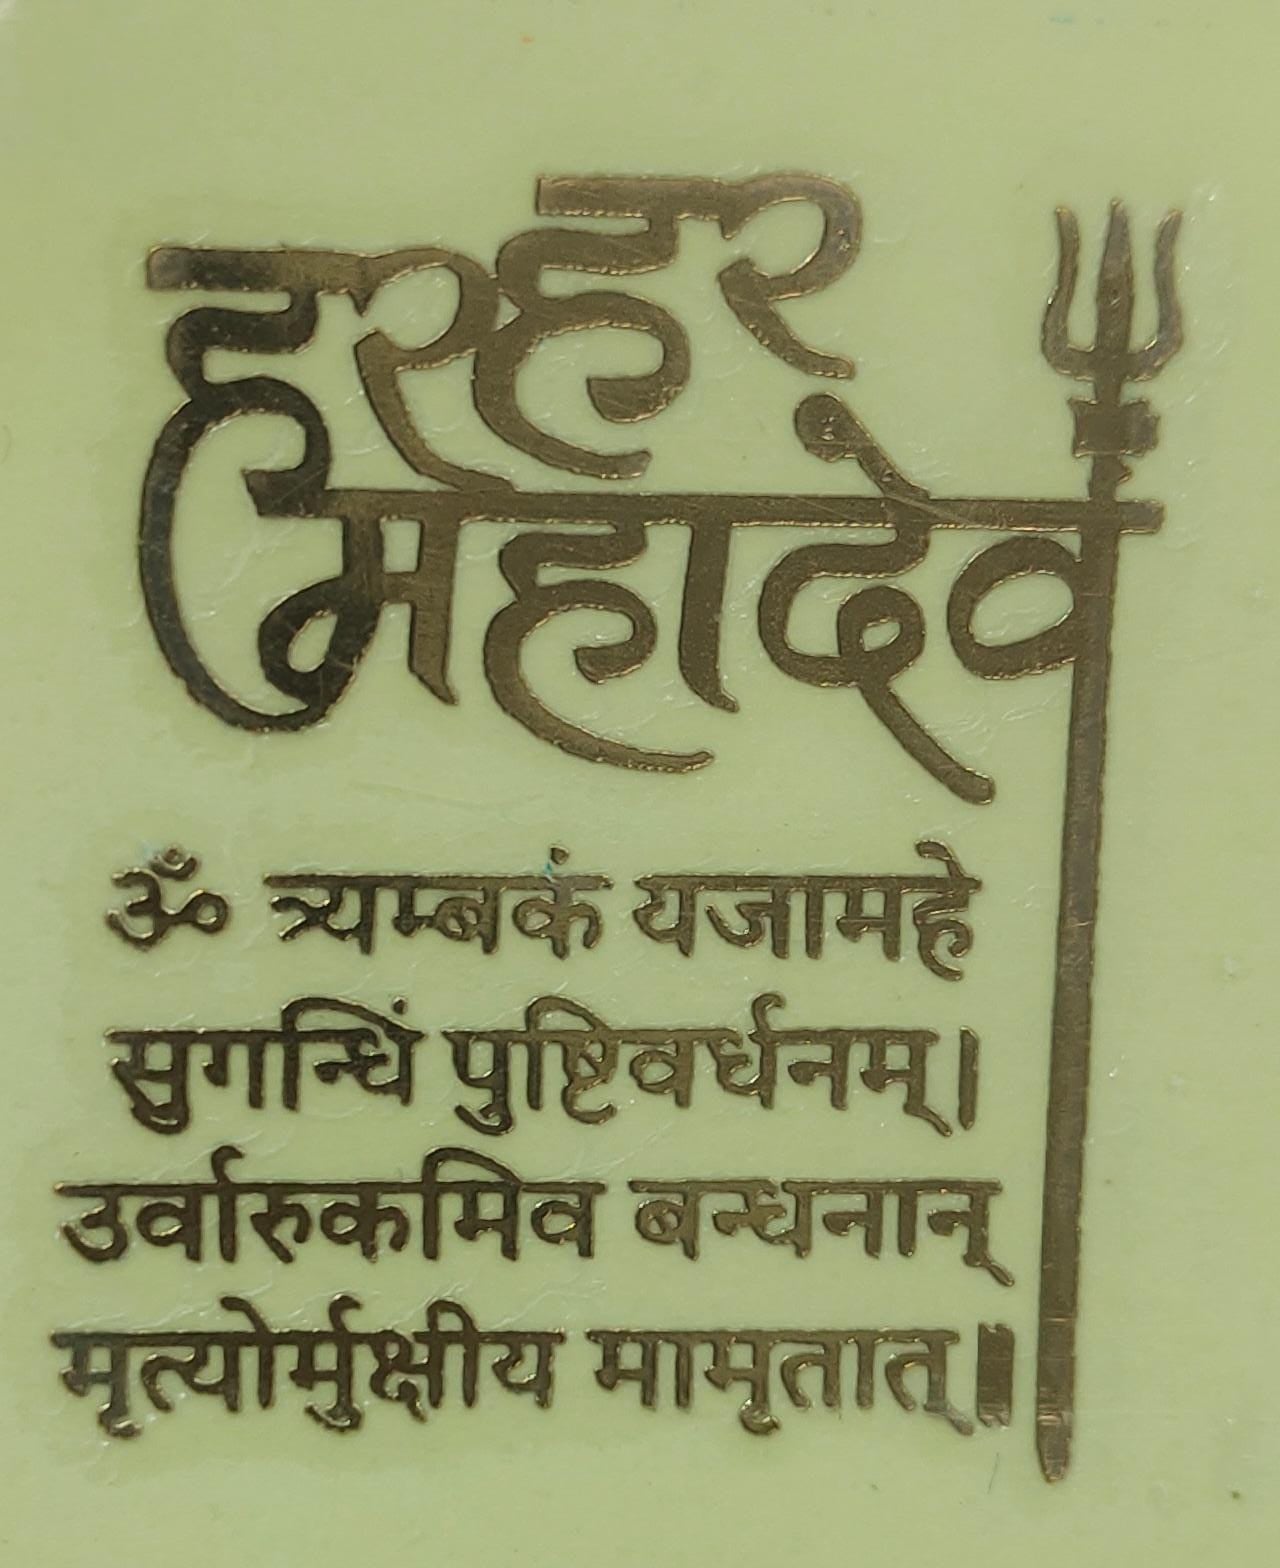 हर हर
महादेव
ॐ त्र्यम्बकं यजामहे
सुगन्धिं पुष्टिवर्धनम्।
उर्वारुकमिव बन्धनान्
मृत्योर्मुक्षीय मामृतात्॥